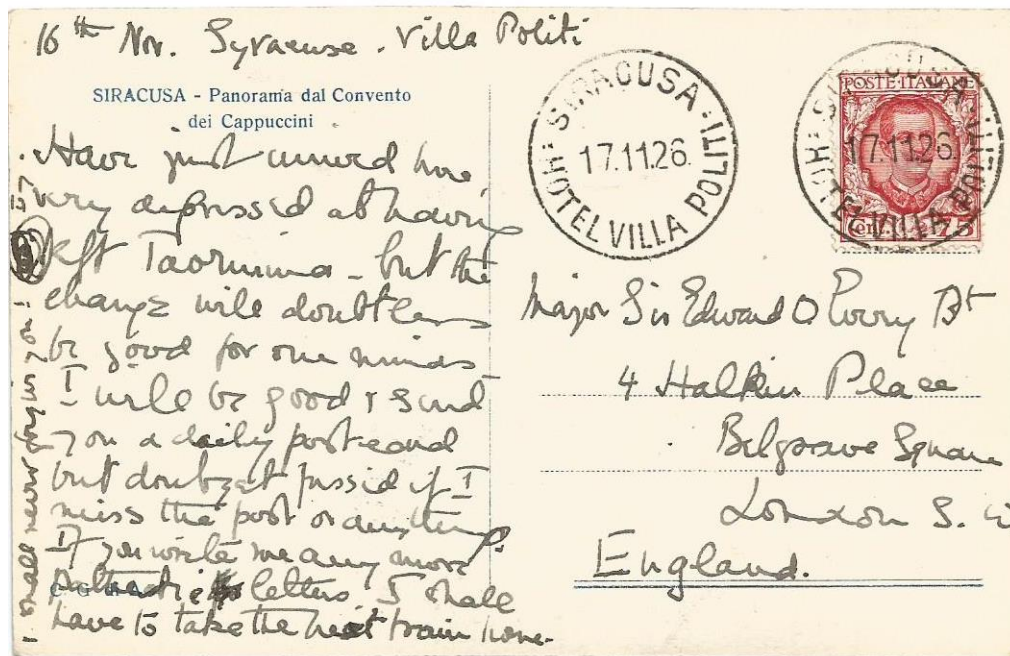 16th Nov. Syracuse. Villa Politi
SIRACUSA - Panorama dal Convento
dei Cappuccini
Have just arrived here,
very depressed at having
left Taormina - but the
change will doubtless
be good for one minds
I will be good & send
you a daily postcard
but don't get fussed if I
miss the post or anything.
If you write me any more
pathetic letters I shall
have to take the next train home.
I shall never forgive you!
SIRACUSA
17.11.26.
HOTEL VILLA POLITI
POSTE ITALIANE
Cent. 75
SIRACUSA
17.11.26
HOTEL VILLA POLITI
Major Sir Edward O. Bt
4 Halkin Place
Belgrave Square
London S. W
England.